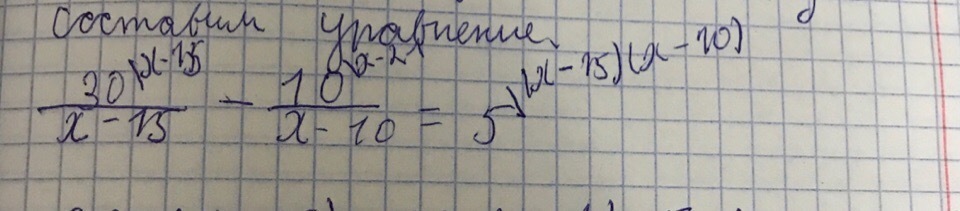 Составим уравнение
30^{\x-15}/(x-15) - 10^{\x-2}/(x-10) = 5^{\(x-15)(x-10)}